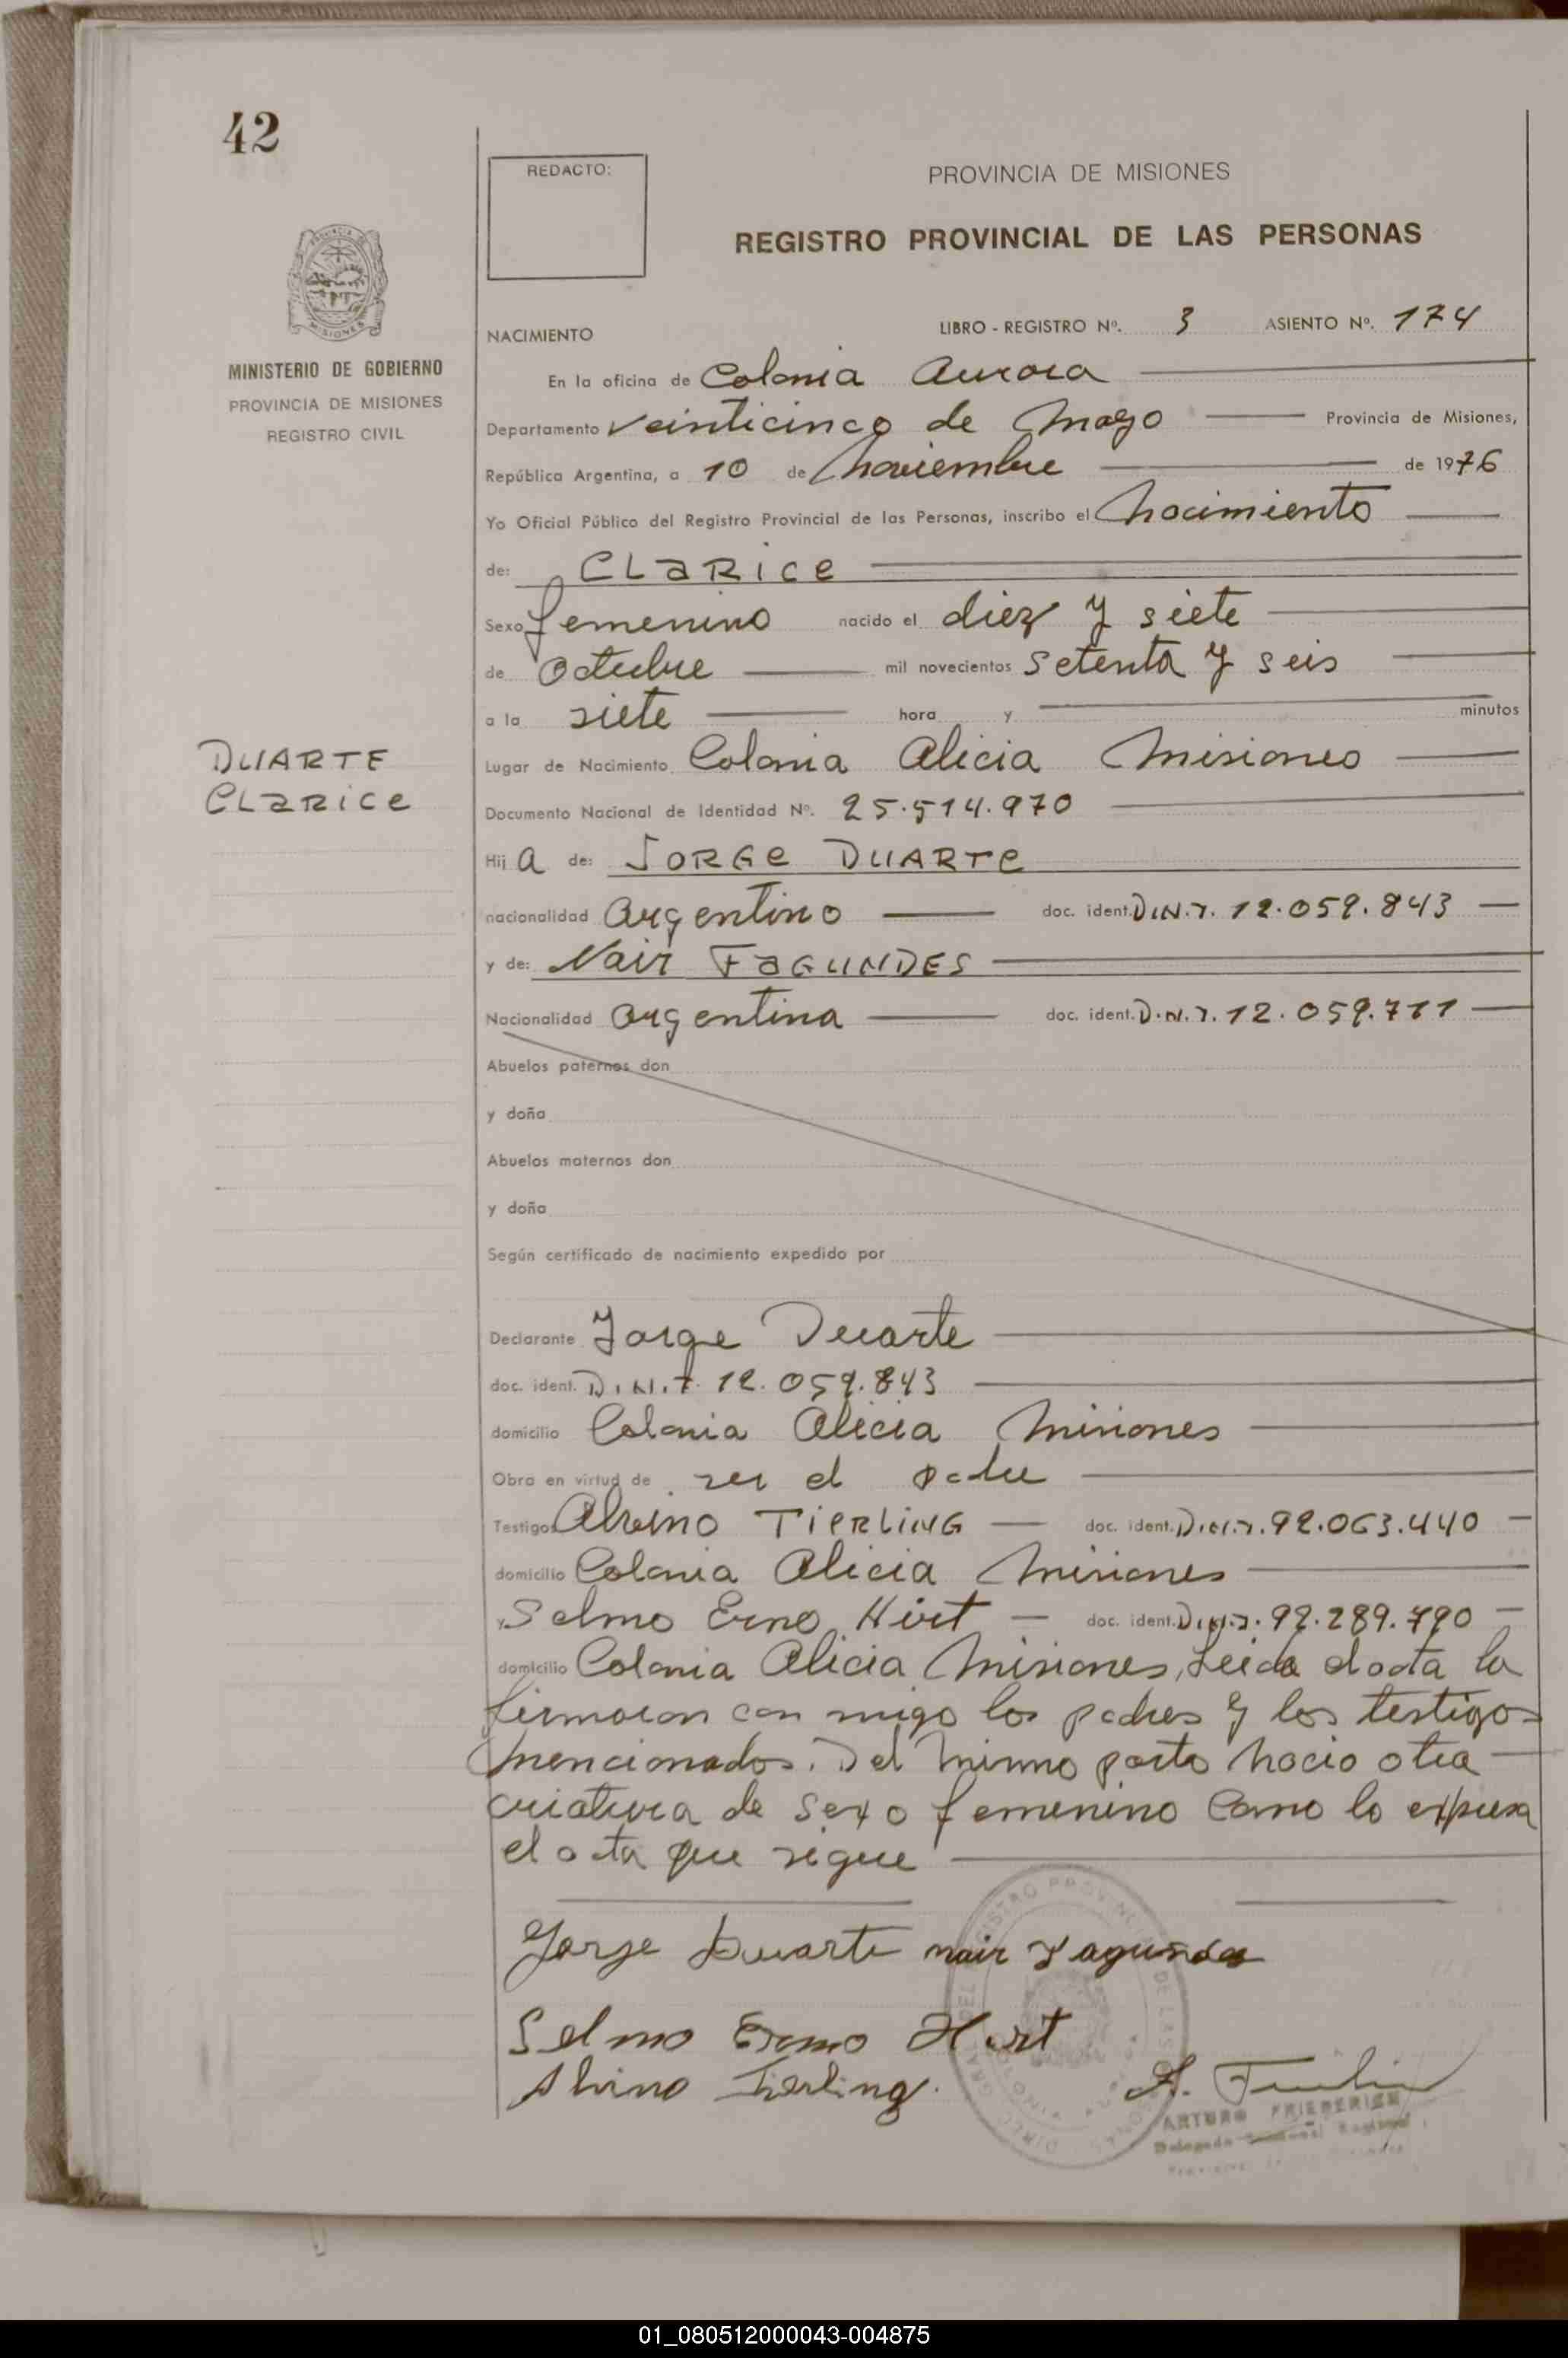 42
REDACTO:
PROVINCIA DE MISIONES
REGISTRO PROVINCIAL DE LAS PERSONAS
MINISTERIO DE GOBIERNO
PROVINCIA DE MISIONES
REGISTRO CIVIL
NACIMIENTO LIBRO - REGISTRO Nº. 3 ASIENTO Nº. 174
En la oficina de Colonia Aurora
Departamento Veinticinco de Mayo Provincia de Misiones,
República Argentina, a 10 de Noviembre de 1976
Yo Oficial Público del Registro Provincial de las Personas, inscribo el Nacimiento
de: CLARICE
Sexo femenino nacido el diez y siete
de Octubre mil novecientos setenta y seis
a la siete hora y minutos
DUARTE
CLARICE
Lugar de Nacimiento Colonia Alicia Misiones
Documento Nacional de Identidad Nº. 25.514.970
Hij A de: JORGE DUARTE
nacionalidad Argentino doc. ident. D.N.I. 12.059.843
y de: Nair FAGUNDES
Nacionalidad Argentina doc. ident. D.N.I. 12.059.711
Abuelos paternos don
y doña
Abuelos maternos don
y doña
Según certificado de nacimiento expedido por
Declarante Jorge Duarte
doc. ident. D.N.I. 12.059.843
domicilio Colonia Alicia Misiones
Obra en virtud de ser el padre
Testigos Alvino TIERLING doc. ident. D.N.I. 92.063.440
domicilio Colonia Alicia Misiones
y Selmo Erno Hirt doc. ident. D.N.I. 92.289.790
domicilio Colonia Alicia Misiones, Leida el acta la
firmaron con migo los padres y los testigos
mencionados. Del mismo parto nacio otra
criatura de sexo femenino como lo expresa
el acta que sigue
Jorge Duarte nair Fagundes
Selmo Erno Hirt
Alvino Tierling.
A. Friederich
ARTURO FRIEDERICH
Delegado
01_080512000043-004875